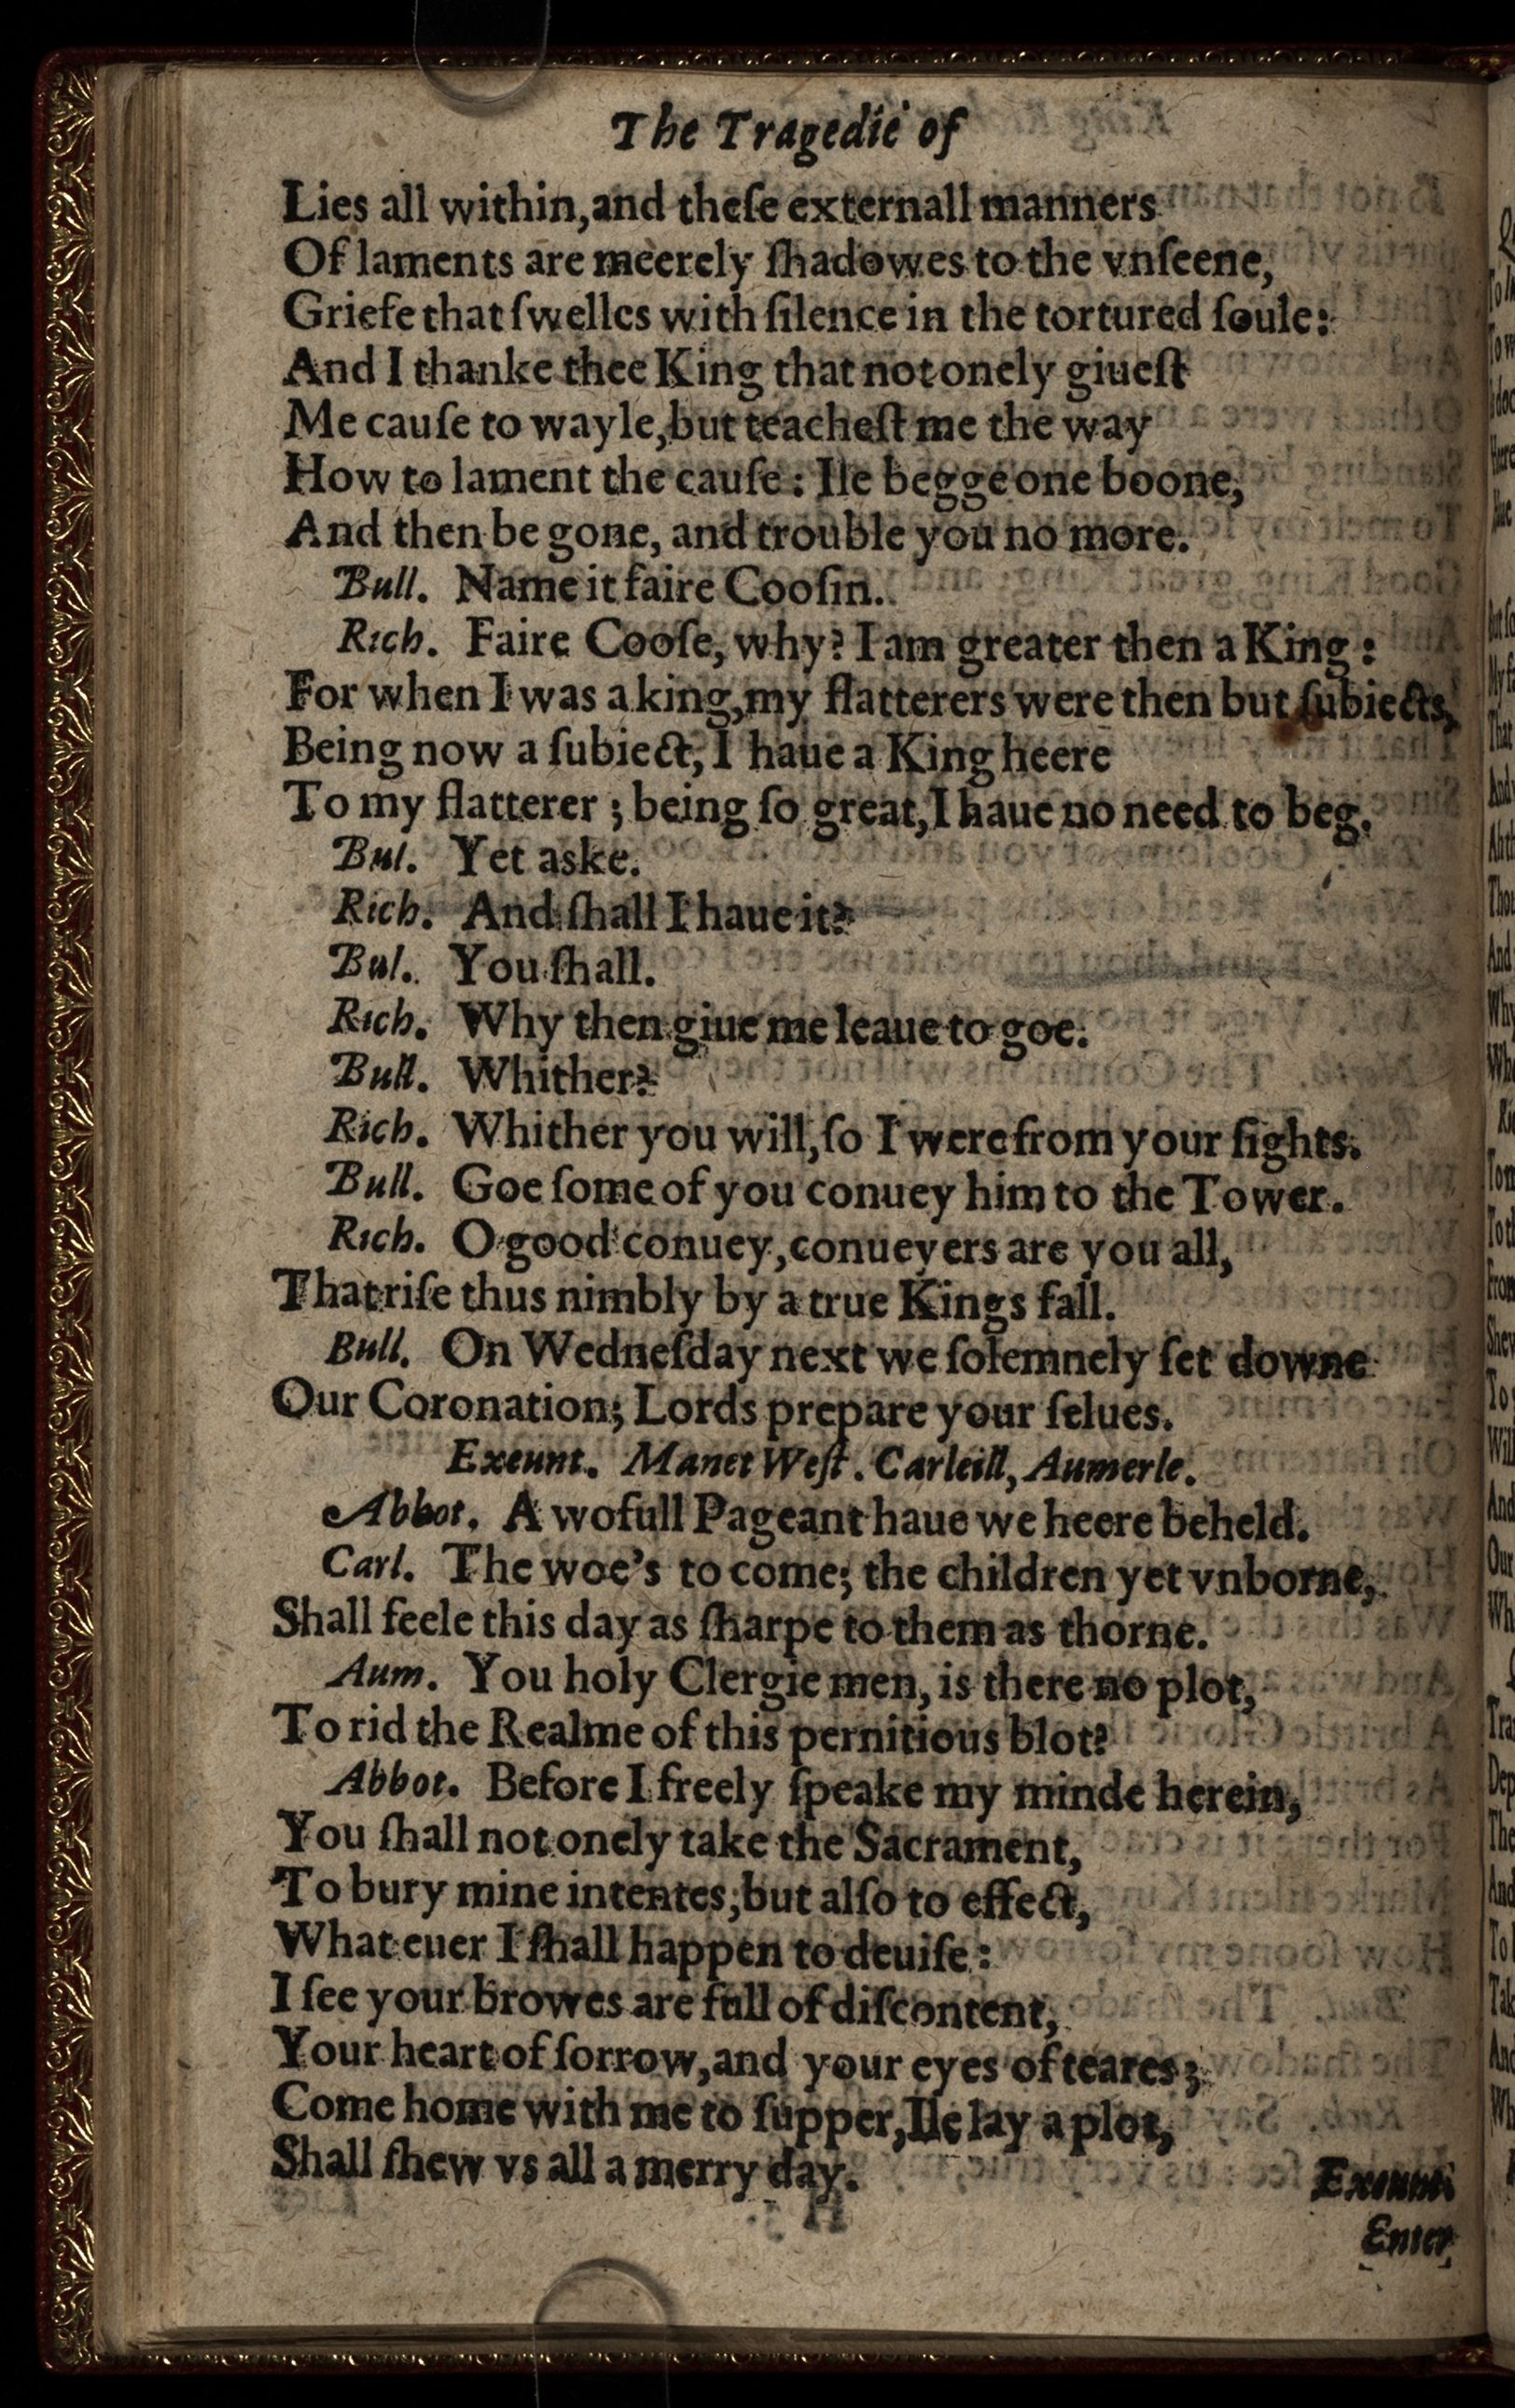 The Tragedie of
Lies all within,and theſe externall manners
Of laments are meerely ſhadowes to the vnſeene,
Griefe that ſwelles with ſilence in the tortured ſoule:
And I thanke thee King that not onely giueſt
Me cauſe to wayle,but teacheſt me the way
How to lament the cauſe: Ile begge one boone,
And then be gone, and trouble you no more.
Bull. Name it faire Cooſin.
Rich. Faire Cooſe, why? I am greater then a King:
For when I was a king,my flatterers were then but ſubiects,
Being now a ſubiect, I haue a King heere
To my flatterer; being ſo great,I haue no need to beg.
Bul. Yet aske.
Rich. And ſhall I haue it?
Bul. You ſhall.
Rich. Why then giue me leaue to goe.
Bull. Whither?
Rich. Whither you will,ſo I were from your ſights.
Bull. Goe ſome of you conuey him to the Tower.
Rich. O good conuey,conueyers are you all,
That riſe thus nimbly by a true Kings fall.
Bull. On Wedneſday next we ſolemnely ſet downe
Our Coronation; Lords prepare your ſelues.
Exeunt. Manet Weſt. Carleill, Aumerle.
Abbot. A wofull Pageant haue we heere beheld.
Carl. The woe's to come; the children yet vnborne,
Shall feele this day as ſharpe to them as thorne.
Aum. You holy Clergie men, is there no plot,
To rid the Realme of this pernitious blot?
Abbot. Before I freely ſpeake my minde herein,
You ſhall not onely take the Sacrament,
To bury mine intentes,but alſo to effect,
What euer I ſhall happen to deuiſe:
I ſee your browes are full of diſcontent,
Your heart of ſorrow,and your eyes of teares;
Come home with me to ſupper,Ile lay a plot,
Shall ſhew vs all a merry day.
Exeunt.
Enter